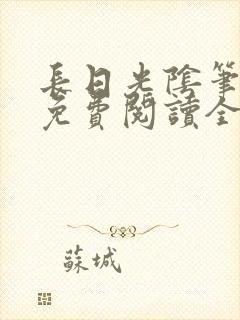 長日光陰筆
免費閱讀全
蘇城